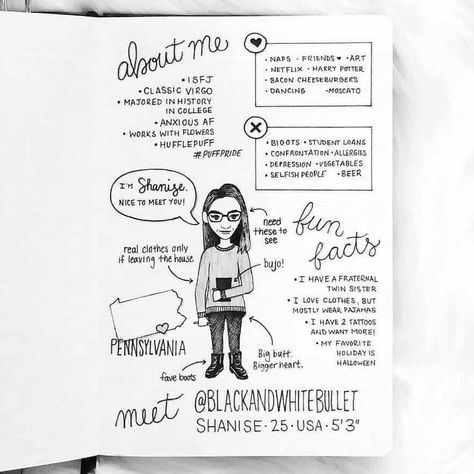 about me
• ISFJ
• CLASSIC VIRGO
• MAJORED IN HISTORY
IN COLLEGE
• ANXIOUS AF
• WORKS WITH FLOWERS
• HUFFLEPUFF
#PUFFPRIDE
• NAPS • FRIENDS ♥ • ART
• NETFLIX • HARRY POTTER
• BACON CHEESEBURGERS
• DANCING • MOSCATO
• BIGOTS • STUDENT LOANS
• CONFRONTATION • ALLERGIES
• DEPRESSION • VEGETABLES
• SELFISH PEOPLE • BEER
I'M Shanise.
NICE TO MEET YOU!
need
these to
see
real clothes only
if leaving the house
bujo!
fun
facts
• I HAVE A FRATERNAL
TWIN SISTER
• I LOVE CLOTHES, BUT
MOSTLY WEAR PAJAMAS
• I HAVE 2 TATTOOS
AND WANT MORE!
• MY FAVORITE
HOLIDAY IS
HALLOWEEN
PENNSYLVANIA
Big butt.
Bigger heart.
fave boots
meet @BLACKANDWHITEBULLET
SHANISE • 25 • USA • 5'3"